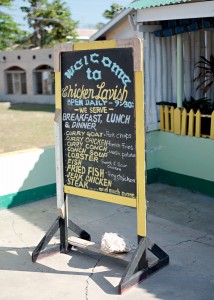 welcome
to
Chicken Lavish
OPEN DAILY - 9:30
- WE SERVE -
BREAKFAST, LUNCH
& DINNER
CURRY GOAT Pork chops
CURRY CHICKEN French fries
CURRY CONCH
CONCH SOUP
LOBSTER
FISH
FRIED FISH
JERK CHICKEN
STEAK